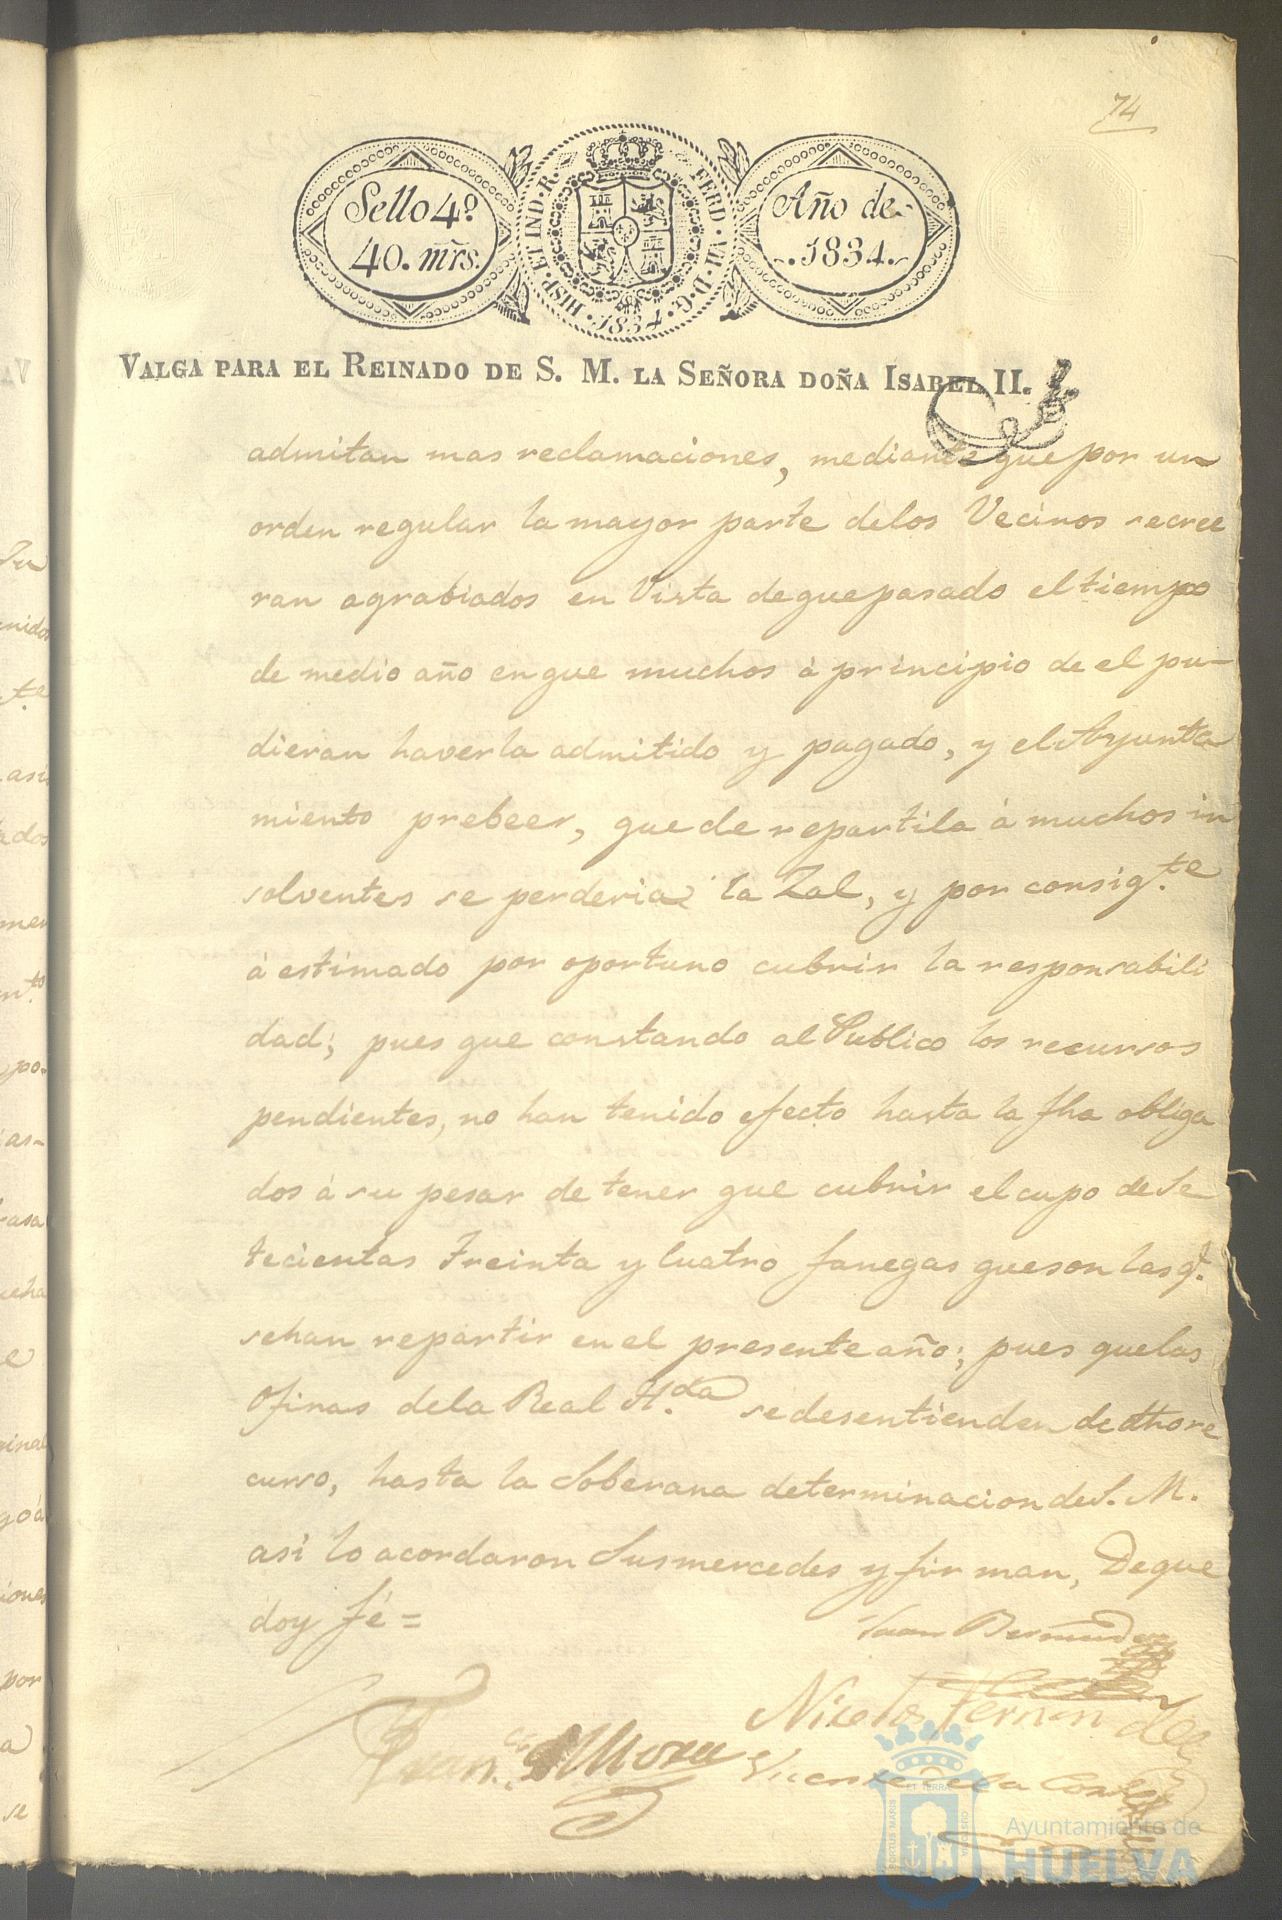 74
Sello 4º
40. mrs.
HISP · ET IND · R.
FERD · VII · D · G ·
· 1834 ·
Año de
1834.
VALGA PARA EL REINADO DE S. M. LA SEÑORA DOÑA ISABEL II.
admitan mas reclamaciones, mediante que por un
orden regular la mayor parte delos Vecinos secree
ran agrabiados en Vista deque pasado el tiempo
de medio año enque muchos à principio de el pu-
dieran haverla admitido y pagado, y el Ayunta
miento prebeer, que de repartila à muchos in
solventes se perderia la Zal, y por consig.te
à estimado por oportuno cubrir la responsabili
dad; pues que constando al Publico los recursos
pendientes, no han tenido efecto hasta la fha obliga
dos à su pesar de tener que cubrir el cupo de Se
tecientas Treinta y Cuatro fanegas queson las q.e
sehan repartir en el presente año; pues quelas
Ofinas dela Real H.da se desentienden de dho re
curso, hasta la Soberana determinacion de S. M.
asi lo acordaron Susmercedes y firman, Deque
doy fé =
Juan Bermudez
Nicolas Fernandez
Fran.co Mora
Vicente de la Corte
PORTUS MARIS
ET TERRA
CUSTODIA
Ayuntamiento de
HUELVA